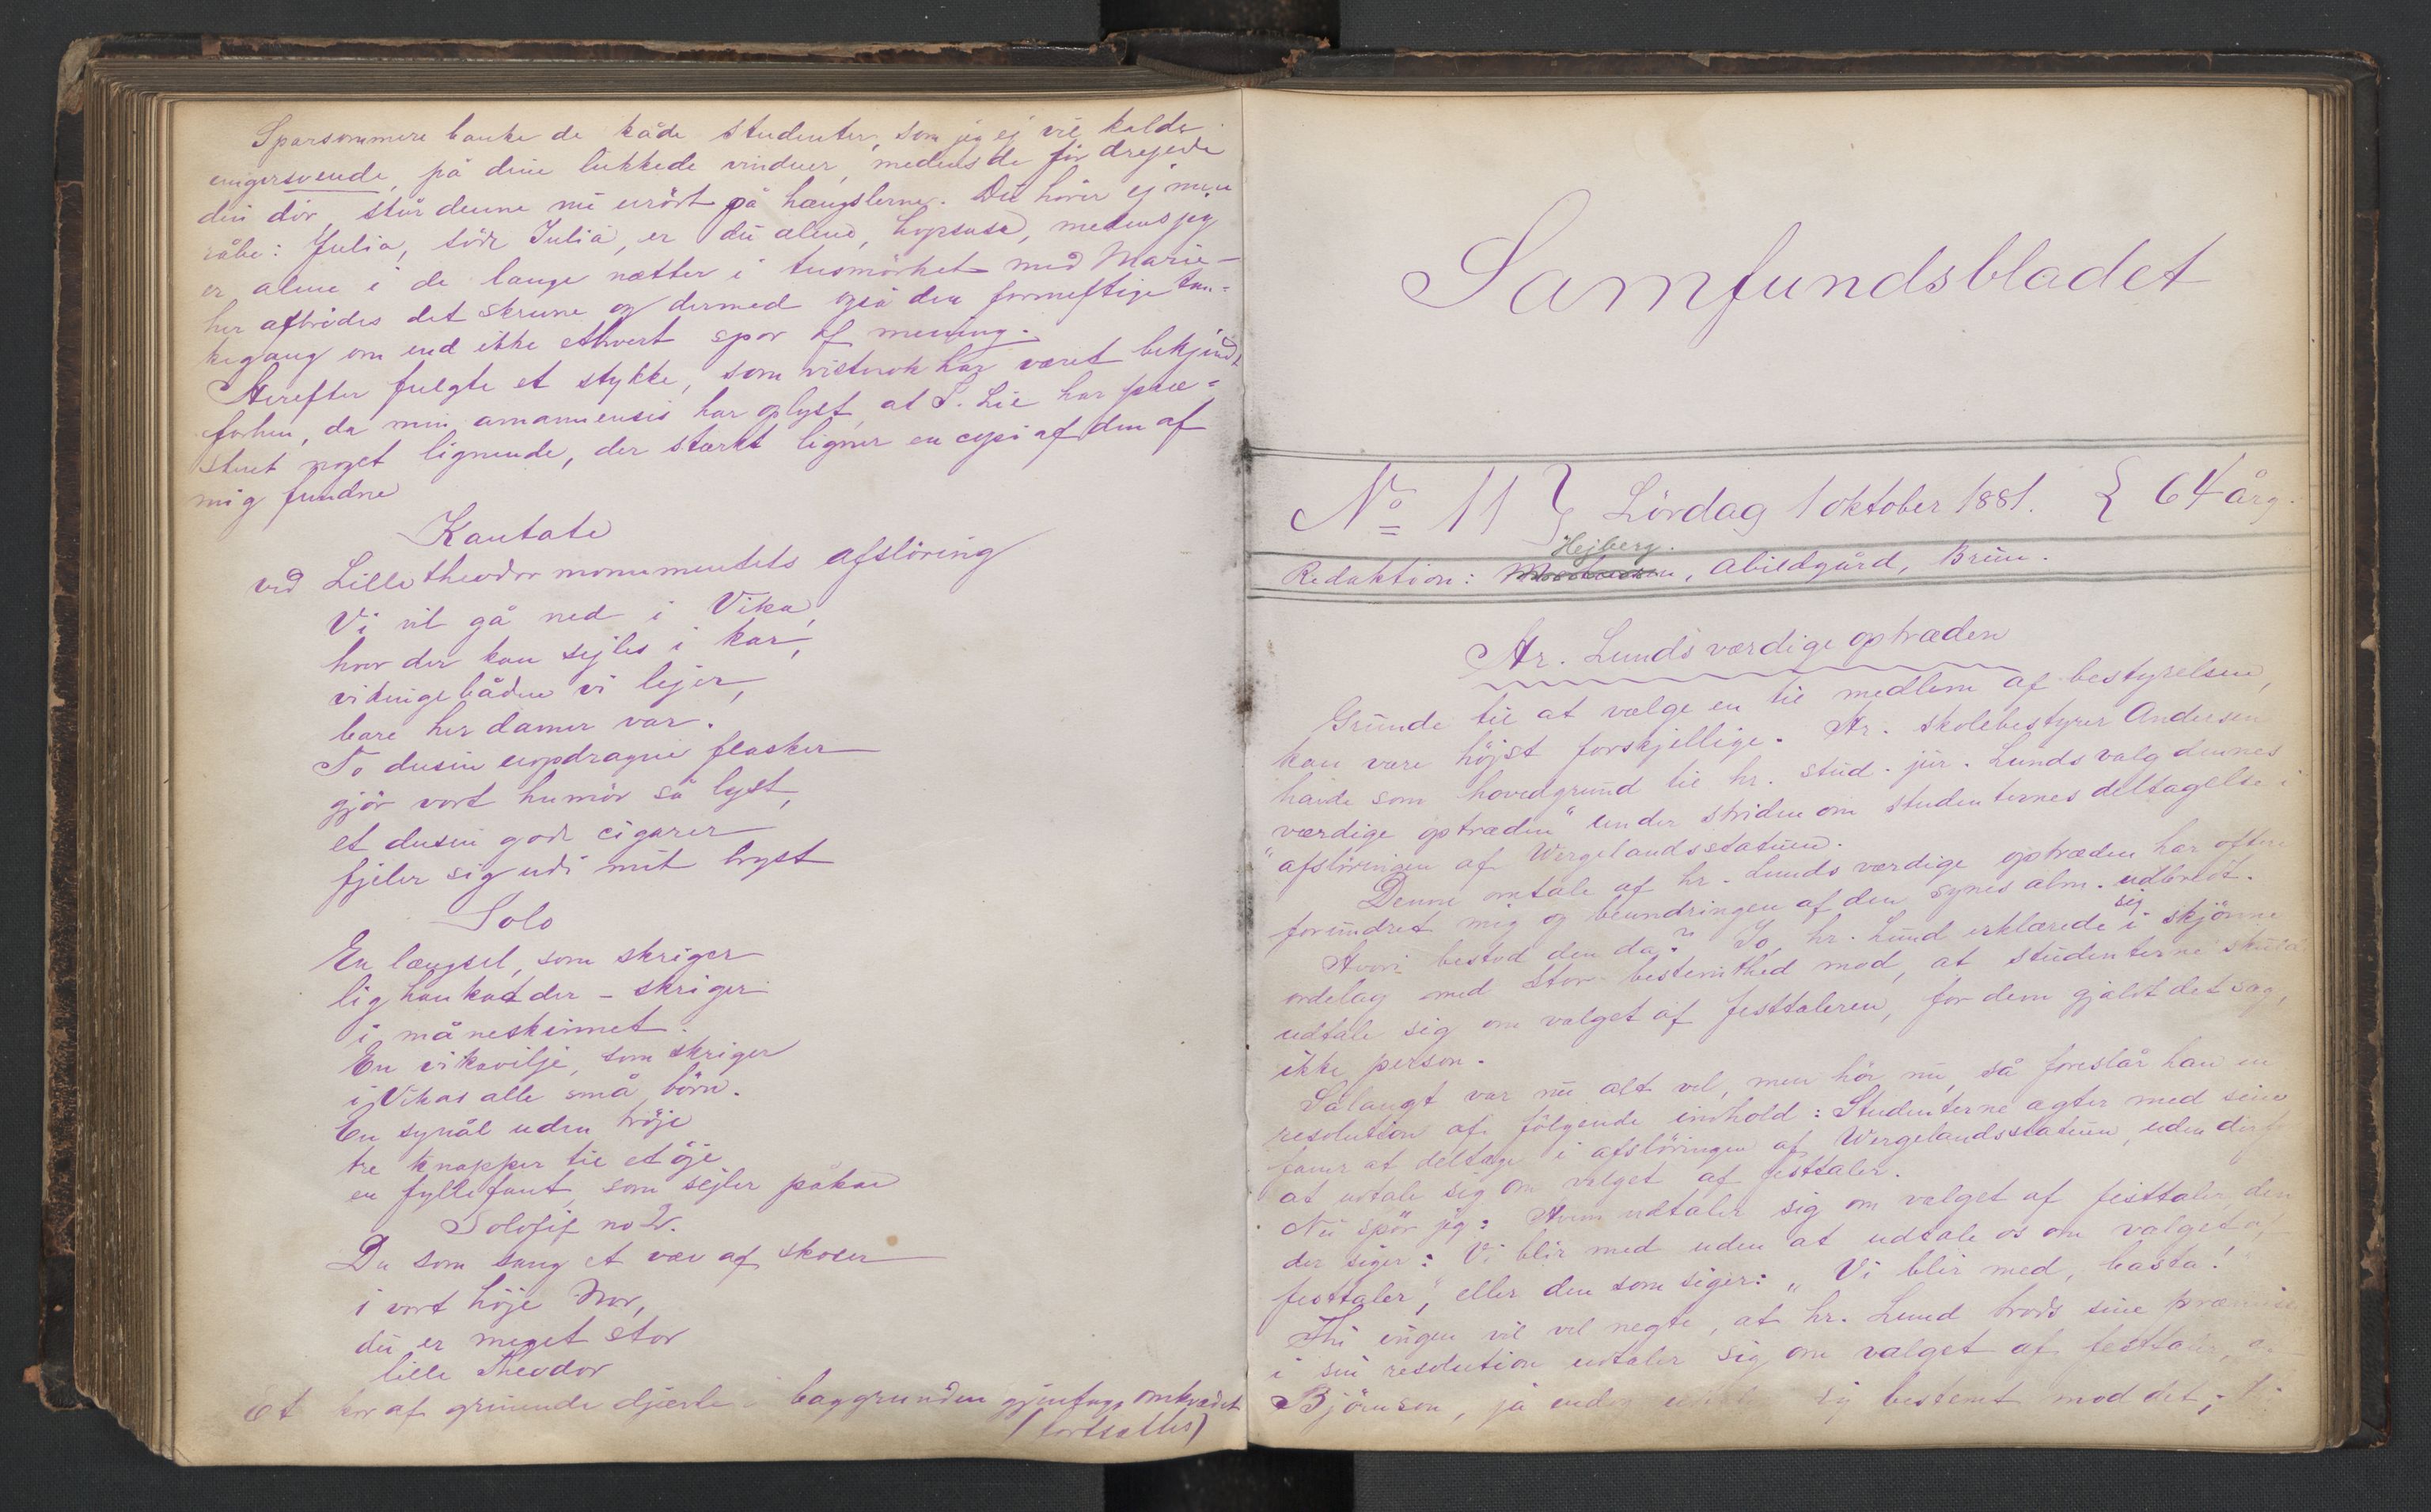 Sparsommere banke de kåde studenter, som jeg ej vil kalde
ungersvende, på dine lukkede vinduer, medens de för drejede
din dör, står denne nu urört på hængslerne. Du hörer ej min
råbe: Julia, söde Julia, er du alene, hopsasa, medens jeg
er alene i de lange nætter i tusmörket med Marie-
her afbrödes det skrevne og dermed også den fornuftige tan-
kegang om end ikke ethvert spor af mening.
Herefter fulgte et stykke, som vistnok har været bekjendt
forhen, da min amanuensis har oplyst, at S. Lie har præ-
steret noget lignende, der stærkt ligner en copi af den af
mig fundne
Kantate
ved Lilletheodor monumentets afslöring
Vi vil gå ned i Vika,
hvor der kan sejles i kar,
vikingebåden vi lejer,
bare her damer var.
To dusin uopdragne flasker
gjör vort humör så lyst,
et dusin gode cigarer
fjeler sig udi mit bryst
Solo
En længsel, som skriger
lig hankatder - skriger
i måneskinnet.
En viksvilje, som skriger
i Vikas alle små börn.
En synål uden tröje
tre knapper til et öje
en fyllefant, som sejler påkar
Solofif no 2.
Du som sang et væv af skoser
i vort höje Nor,
du er meget stor
lille Theodor
Et kor af grinende djævle i baggrunden gjentage omkvædet
(fortsættes)
Samfundsbladet
No 11 } Lördag 1 oktober 1881. { 64 årg.
Hejberg.
Redaktion: , Abildgård, Bruun.
Hr. Lunds værdige optræden
Grunde til at vælge en til medlem af bestyrelsen,
kan være höjst forskjellige. Hr. skolebestyrer Andersen
havde som hovedgrund til hr. stud. jur. Lunds valg dennes
værdige optræden" under striden om studenternes deltagelse i
"afslöringen af Wergelandsstatuen.
Denne omtale af hr. Lunds værdige optræden har oftere
forundret mig og beundringen af den synes alm. udbredt.
Hvori bestod den da? Jo, hr. Lund erklærede sig i skjönne
ordelag med stor bestemthed mod, at studenterne skulde
udtale sig om valget af festtaleren, for dem gjaldt det sag,
ikke person.
Sålangt var nu alt vel, men hör nu, så foreslår han en
resolution af fölgende indhold: Studenterne agter med sine
faner at deltage i afslöringen af Wergelandsstatuen, uden derf
at udtale sig om valget af festtaler.
Nu spör jeg: Hvem udtaler sig om valget af festtaler, den
der siger: Vi blir med uden at udtale os om valget af
festtaler", eller den som siger: "Vi blir med, basta!
Thi ingen vil vel negte, at hr. Lund trods sine præmisser
i sin resolution udtaler sig om valget af festtaler,
Björnson, ja endog sig bestemt mod det;